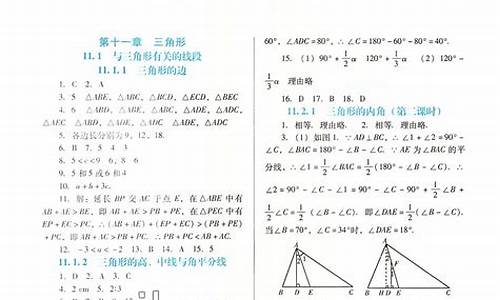 第十一章 三角形
11.1 与三角形有关的线段
11.1.1 三角形的边
1. C 2. A
3. 5 △ABE, △ABC, △BCD, △ECD, △BEC
4. 6 △ABD, △ABE, △ABC, △ADE, △ADC,
△AEC △ABD, △ADE, △ADC △ADE, △ADC
5. 各边长分别为 9, 12, 18.
6. B 7. 5 4 3
8. 5<c<9 6, 8 6
9. 5 和 5 或 6 和 4
10. a+b+3c.
11. 解: 延长 BP 交 AC 于点 E, 在△ABE 中有
AB+AE>BE, 即 AB+AE>PB+PE, 在△PEC 中有
EP+EC>PC, ∴(AB+AE)+(EP+EC)>(PB+PE)
+PC, 即 AB+AC>PB+PC. ∴PB+PC<AB+AC.
12. -3<a<-2 13. B 14. A 15. 5
11.1.2 三角形的高、中线与角平分线
1. D 2. A 3. C
4. 2 cm 5. 2:3
60°, ∠ADC=80°, ∴∠C=180°-60°-80°=40°.
15. (1) 90°+1/2α 120°+1/3α (2) 120°-
1/3α 理由略
16. D 17. B 18. D
11.2.1 三角形的内角(第二课时)
1. 相等. 理由略. 2. 相等. 理由略.
3. (1) 如图 1. ∵AD⊥BC, ∴∠1+∠2=90°-
∠C, ∠BAC=180°-∠B-∠C. ∵AE 为∠BAC 的平
分线, ∴∠1=1/2∠BAC=1/2(180°-∠B-∠C). ∴
∠2=90°-∠C-∠1=90°-∠C-90°+1/2∠B+
1/2∠C=1/2(∠B-∠C). 即∠DAE=1/2(∠B-∠C).
当∠B=70°, ∠C=34°时, ∠DAE=18°.
A
2 1
B D E C
A
F
B H D E C